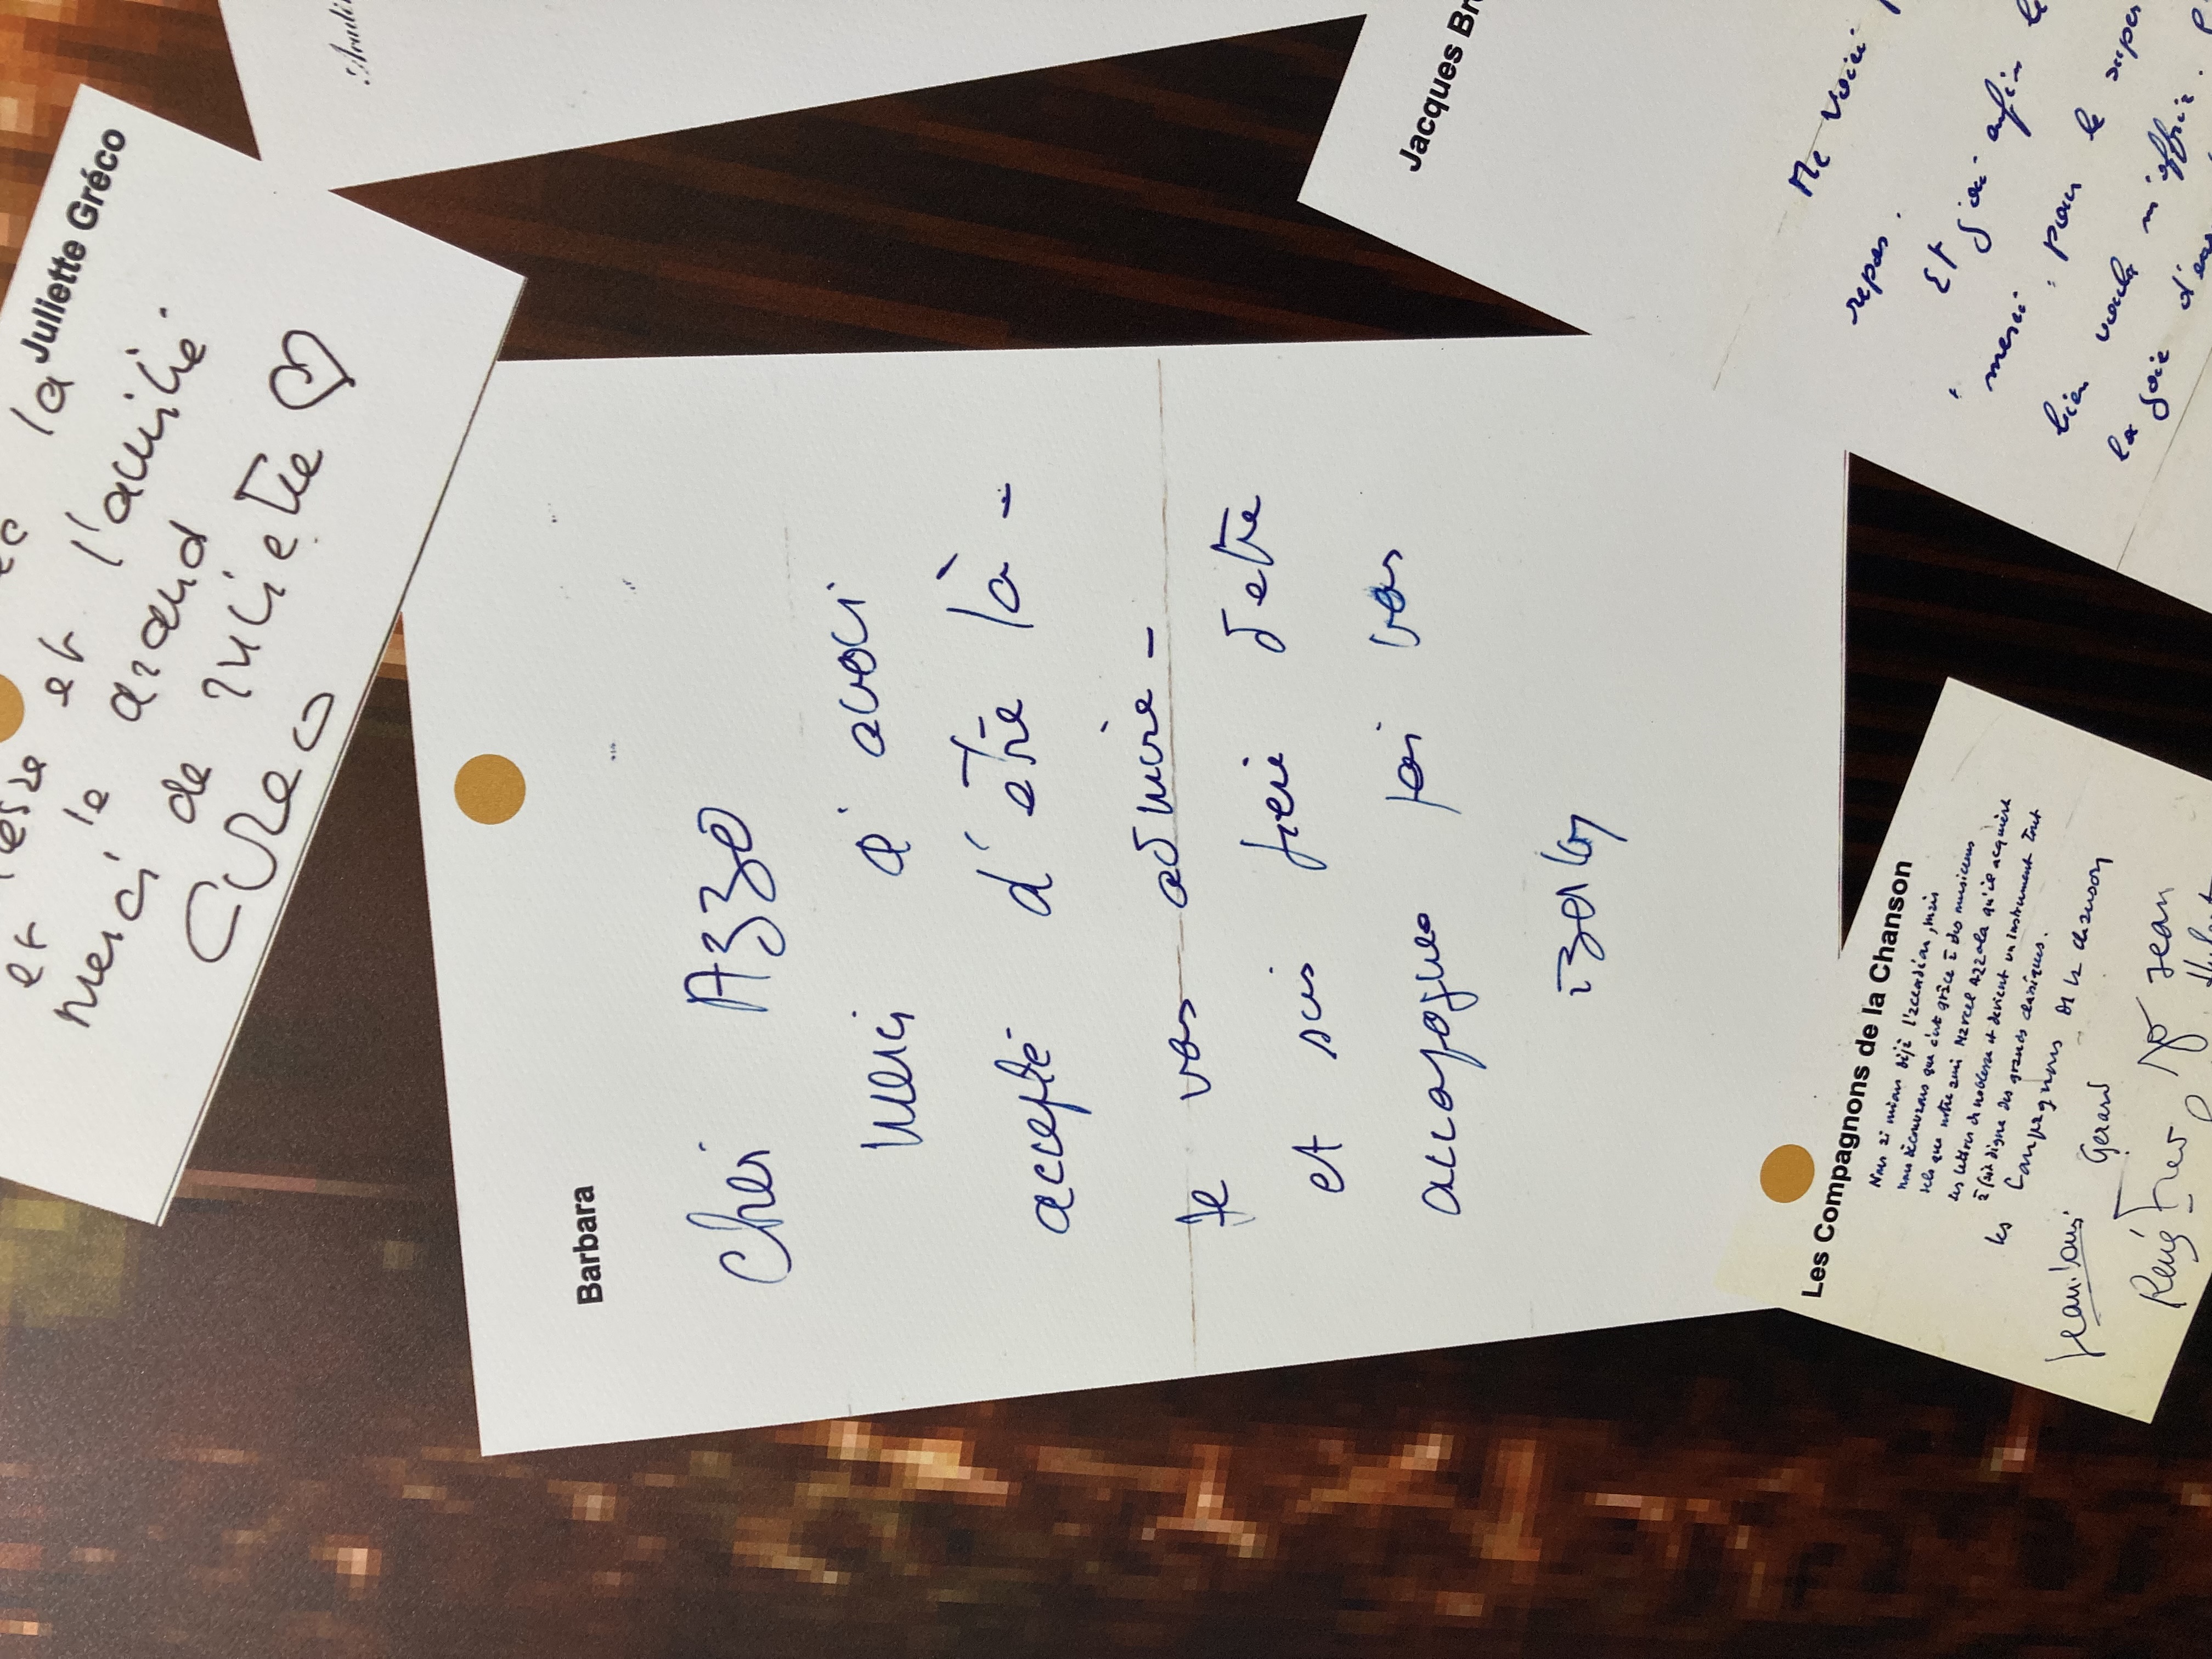 Barbara
Cher Azzo
merci d'avoir
accepté d'être là -
Je vous admire -
et suis fière d'etre
accompagnée par vous
Barbara
la Juliette Gréco
et l'amitié
et le grand
merci de Juliette
Gréco
Jacques Br
Me voici
repos.
Et j'ai enfin le
merci, pour le super
bien voulu m'offrir.
la joie d'en
Les Compagnons de la Chanson
Nous aimions déjà l'accordéon, mais
nous découvrons que c'est grâce à des musiciens
tels que notre ami Marcel Azzola qu'il acquière
ses lettres de noblesse et devient un instrument tout
à fait digne des grands classiques.
les Compagnons de la chanson
Jean-Louis Gérard
René Fred Jo Jean
Hubert